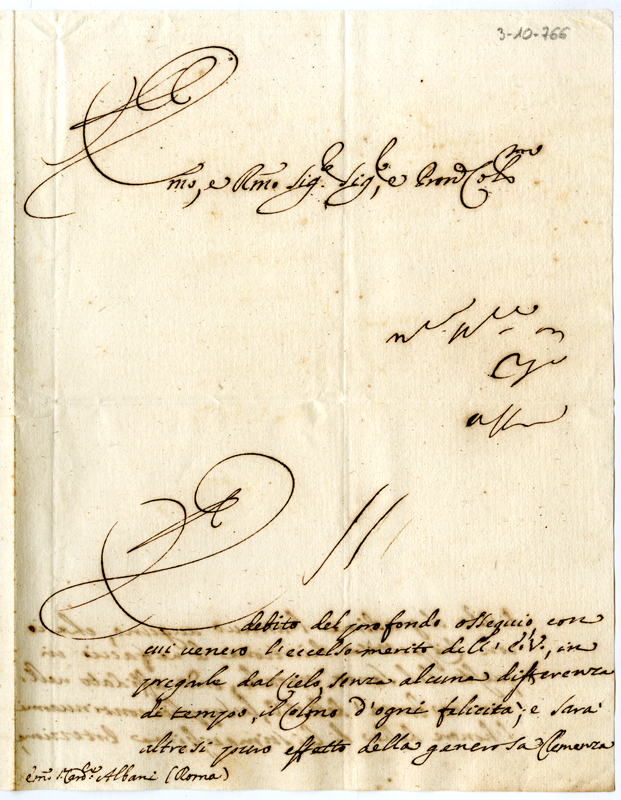 3-10-766
Emo, e Rmo Sig.r Sig.r, e Pron Colmo
È debito del profondo ossequio, con
cui venero l'eccelso merito dell' E.V., in
pregarle dal Cielo, senza alcuna differenza
di tempo, il Colmo d'ogni felicità; e sarà
altresi puro effetto della generosa Clemenza
Albani (Roma)